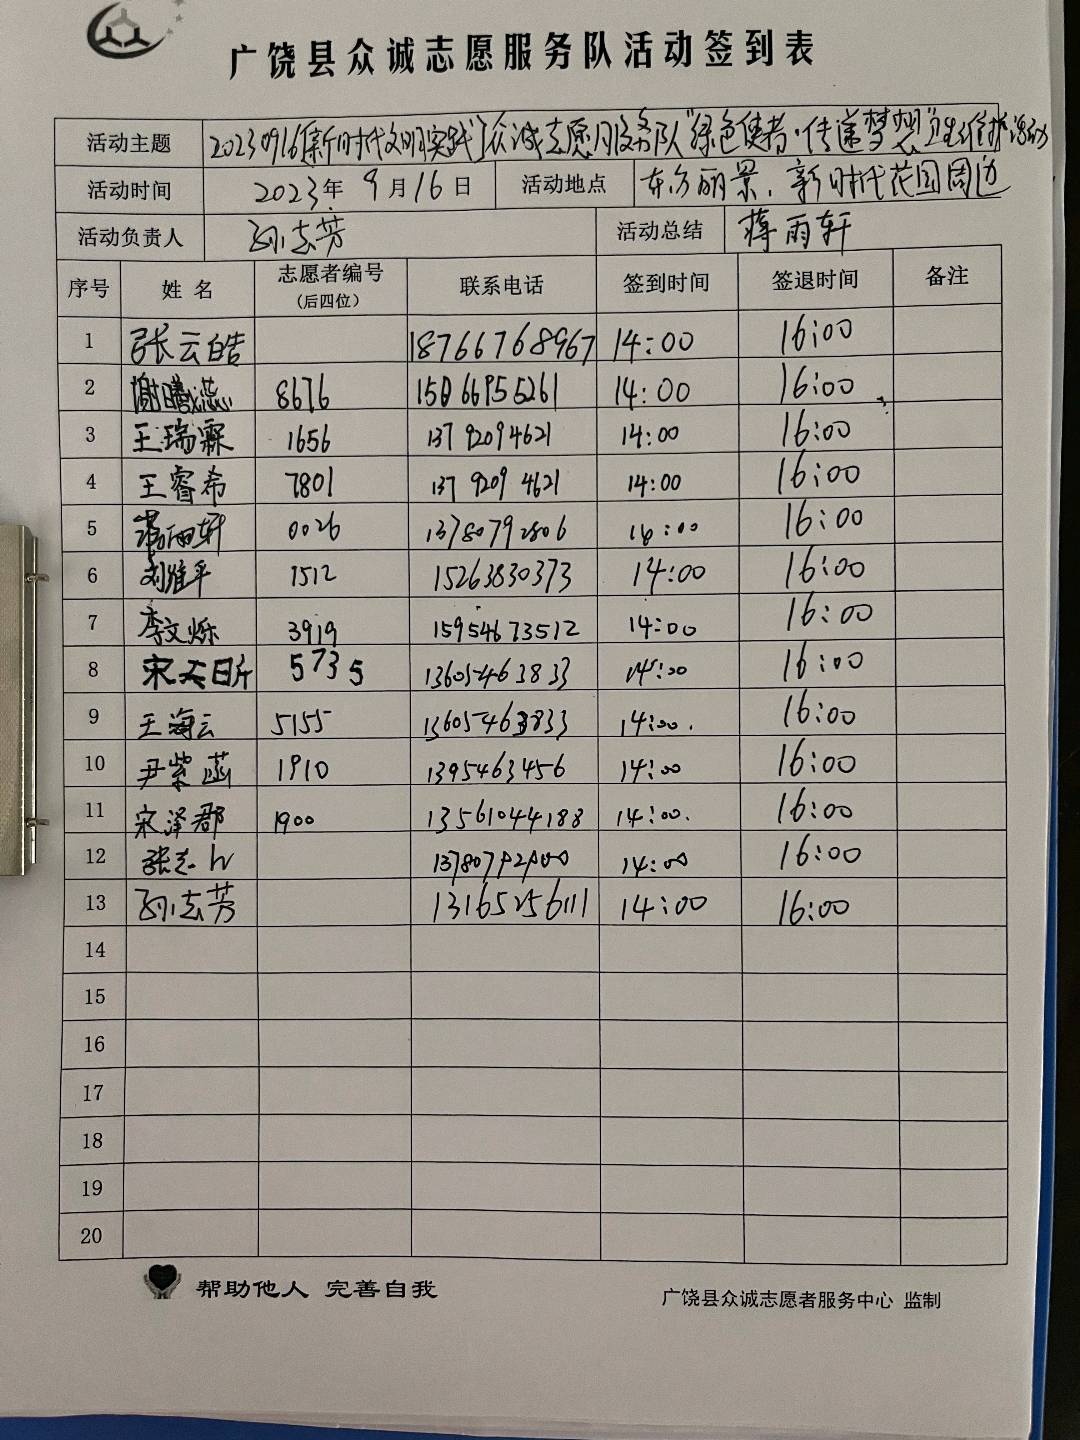 广饶县众诚志愿服务队活动签到表
活动主题 20230916[新时代文明实践]众诚志愿服务队"绿色使者·传递梦想"卫生维护活动
活动时间 2023年 9月16日 活动地点 东方丽景、新时代花园周边
活动负责人 孙志芳 活动总结 蒋雨轩
序号 姓名 志愿者编号 (后四位) 联系电话 签到时间 签退时间 备注
1 张云皓 18766768967 14:00 16:00
2 谢曦蕊 8676 15066955261 14:00 16:00
3 王瑞霖 1656 13792094621 14:00 16:00
4 王睿希 7801 137 9209 4621 14:00 16:00
5 蒋雨轩 0026 13780792806 14:00 16:00
6 刘维平 1512 15263830373 14:00 16:00
7 李文烁 3919 15954673512 14:00 16:00
8 宋天昕 5735 13605463833 14:00 16:00
9 王海云 5155 13605463833 14:00. 16:00
10 尹紫菡 1910 1395463456 14:00 16:00
11 宋泽郡 1900 13561044188 14:00. 16:00
12 张志 14:00 16:00
13 孙志芳 13165256111 14:00 16:00
14
15
16
17
18
19
20
帮助他人 完善自我
广饶县众诚志愿者服务中心 监制